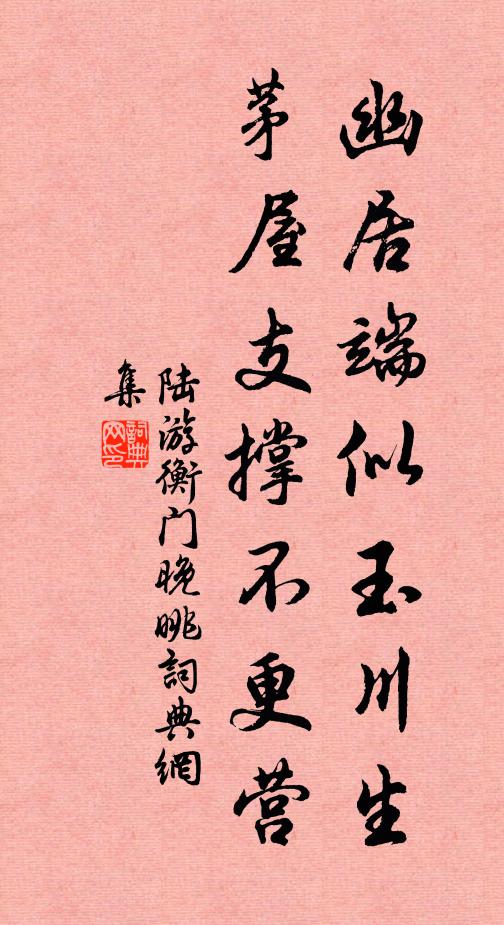 幽居端似玉川生
茅屋支撑不更营
陆游衡门晚眺詞典網
集
詞典
网印